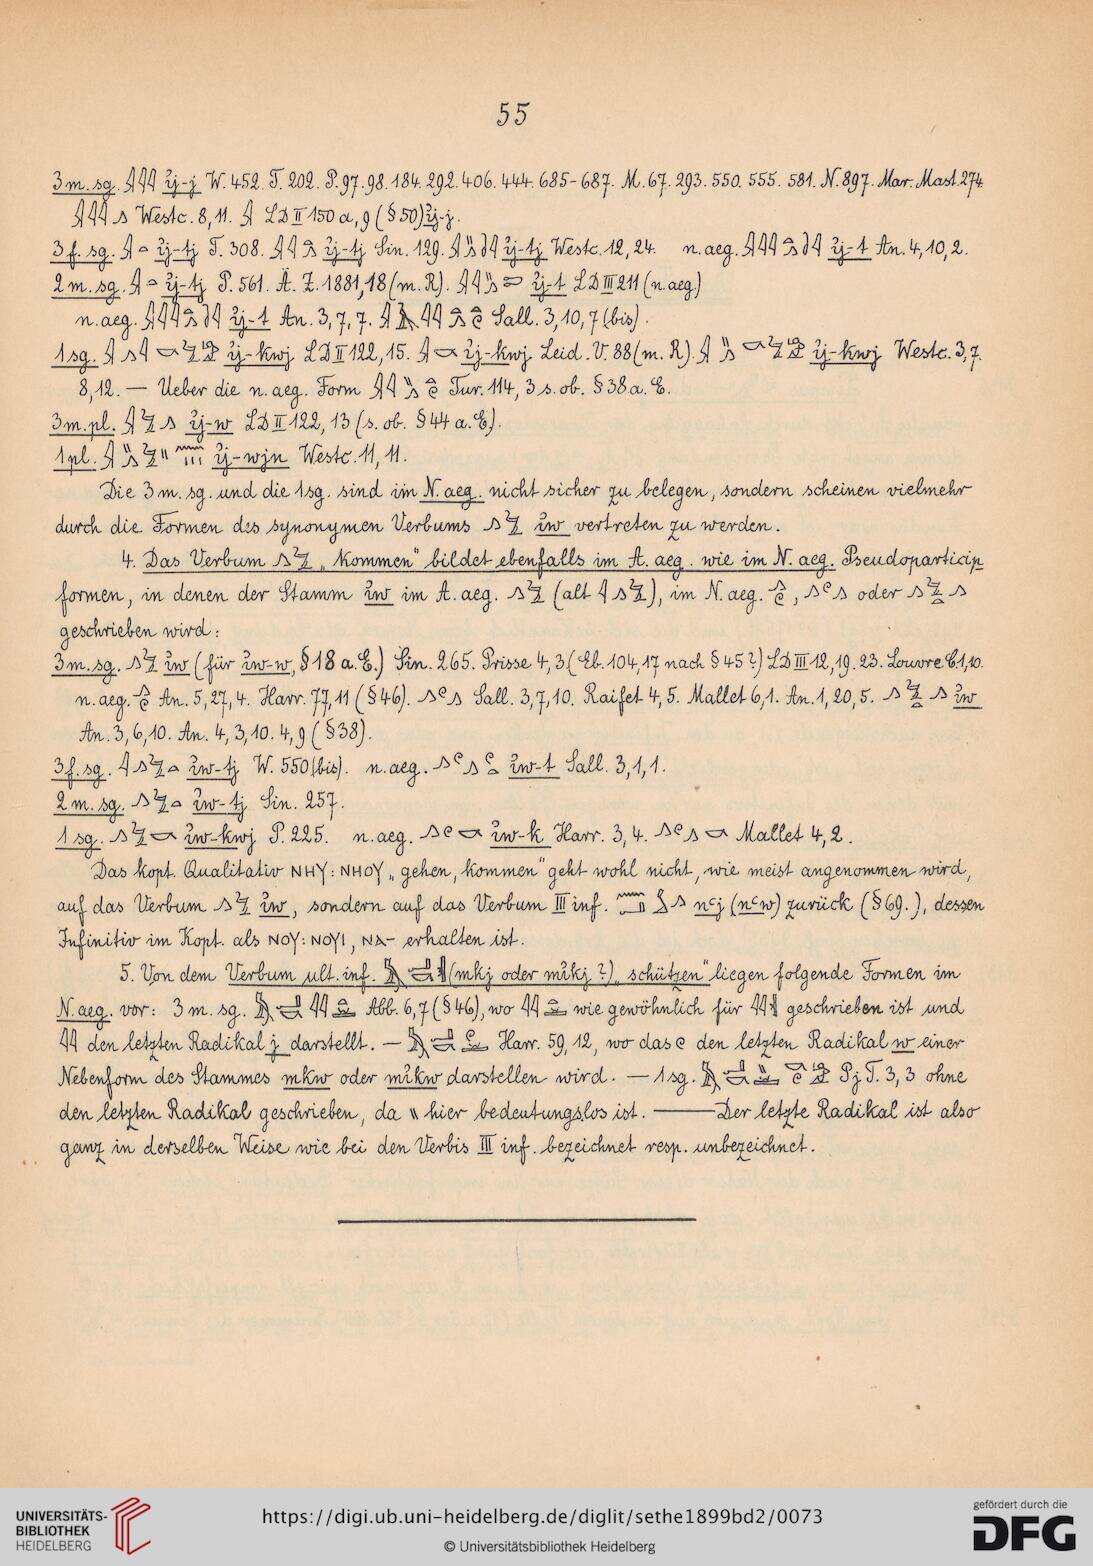 55
3 m. sg. 𓇋𓇋𓇋 ꞽj-j W. 452. T. 202. P. 97. 98. 184. 292. 406. 444. 685-687. M. 67. 293. 550. 555. 581. N. 897. Mar. Mast. 274.
𓇋𓇋𓇋𓂻 Westc. 8, 11. 𓇋 LD II 150 a, 9 (§ 50) ꞽj-j.
3 f. sg. 𓇋𓏏 ꞽj-tj T. 308. ꞽj-tj Sin. 129. ꞽj-tj Westc. 12, 24. n. aeg. ꞽj-t An. 4, 10, 2.
2 m. sg. 𓇋𓏏 ꞽj-tj P. 561. Ä. Z. 1881, 18 (m. R). ꞽj-t LD III 211 (n. aeg)
n. aeg. ꞽj-t An. 3, 7, 7. Sall. 3, 10, 7 (bis).
1 sg. ꞽj-kwj LD II 122, 15. 𓇋𓎡 ꞽj-kwj Leid. V. 88 (m. R). ꞽj-kwj Westc. 3, 7.
8, 12. — Ueber die n. aeg. Form Tur. 114, 3 s. ob. § 38 a. E.
3 m. pl. 𓇋𓅱𓂻 ꞽj-w LD II 122, 13 (s. ob. § 44 a. E).
1 pl. ꞽj-wjn Westc. 11, 11.
Die 3 m. sg. und die 1 sg. sind im N. aeg. nicht sicher zu belegen, sondern scheinen vielmehr
durch die Formen des synonymen Verbums 𓂻𓅱 ꞽw vertreten zu werden.
4. Das Verbum 𓂻𓅱 „kommen“ bildet ebenfalls im A. aeg. wie im N. aeg. Pseudoparticip
formen, in denen der Stamm ꞽw im A. aeg. 𓂻𓅱 (alt 𓇋𓂻𓅱), im N. aeg. 𓂻𓏲, 𓂻𓏲𓂻 oder
geschrieben wird:
3 m. sg. 𓂻𓅱 ꞽw (für ꞽw-w, § 18 a. E.) Sin. 265. Prisse 4, 3. (Eb. 104, 17 nach § 45?) LD III 12, 19. 23. Louvre C. 1, 10.
n. aeg. 𓂻𓏲 An. 5, 27, 4. Harr. 77, 11 (§ 46). 𓂻𓏲𓂻 Sall. 3, 7, 10. Raifet 4, 5. Mallet 6, 1. An. 1, 20, 5. ꞽw
An. 3, 6, 10. An. 4, 3, 10. 4, 9 (§ 38).
3 f. sg. 𓇋𓂻𓅱𓏏 ꞽw-tj W. 550 (bis). n. aeg. ꞽw-t Sall. 3, 1, 1.
2 m. sg. 𓂻𓅱𓏏 ꞽw-tj Sin. 257.
1 sg. 𓂻𓅱𓎡 ꞽw-kwj P. 225. n. aeg. 𓂻𓏲𓎡 ꞽw-k Harr. 3, 4. 𓂻𓏲𓂻𓎡 Mallet 4, 2.
Das kopt. Qualitativ ⲚⲎⲨ : ⲚⲎⲞⲨ „gehen, kommen“ geht wohl nicht, wie meist angenommen wird,
auf das Verbum 𓂻𓅱 ꞽw, sondern auf das Verbum III inf. nꜥj (nꜥw) zurück (§ 69.), dessen
Infinitiv im Kopt. als ⲚⲞⲨ : ⲚⲞⲨⲒ, ⲚⲀ- erhalten ist.
5. Von dem Verbum ult. inf. (mkj oder mꞽkj?) „schützen“ liegen folgende Formen im
N. aeg. vor: 3 m. sg. Abb. 6, 7 (§ 46), wo wie gewöhnlich für geschrieben ist und
𓇋𓇋 den letzten Radikal j darstellt. — Harr. 59, 12, wo das 𓏲 den letzten Radikal w einer
Nebenform des Stammes mkw oder mꞽkw darstellen wird. — 1 sg. Pj. T. 3, 3 ohne
den letzten Radikal geschrieben, da 𓏭 hier bedeutungslos ist. — Der letzte Radikal ist also
ganz in derselben Weise wie bei den Verbis III inf. bezeichnet resp. unbezeichnet.
UNIVERSITÄTS-
BIBLIOTHEK
HEIDELBERG
https://digi.ub.uni-heidelberg.de/diglit/sethe1899bd2/0073
© Universitätsbibliothek Heidelberg
gefördert durch die
DFG